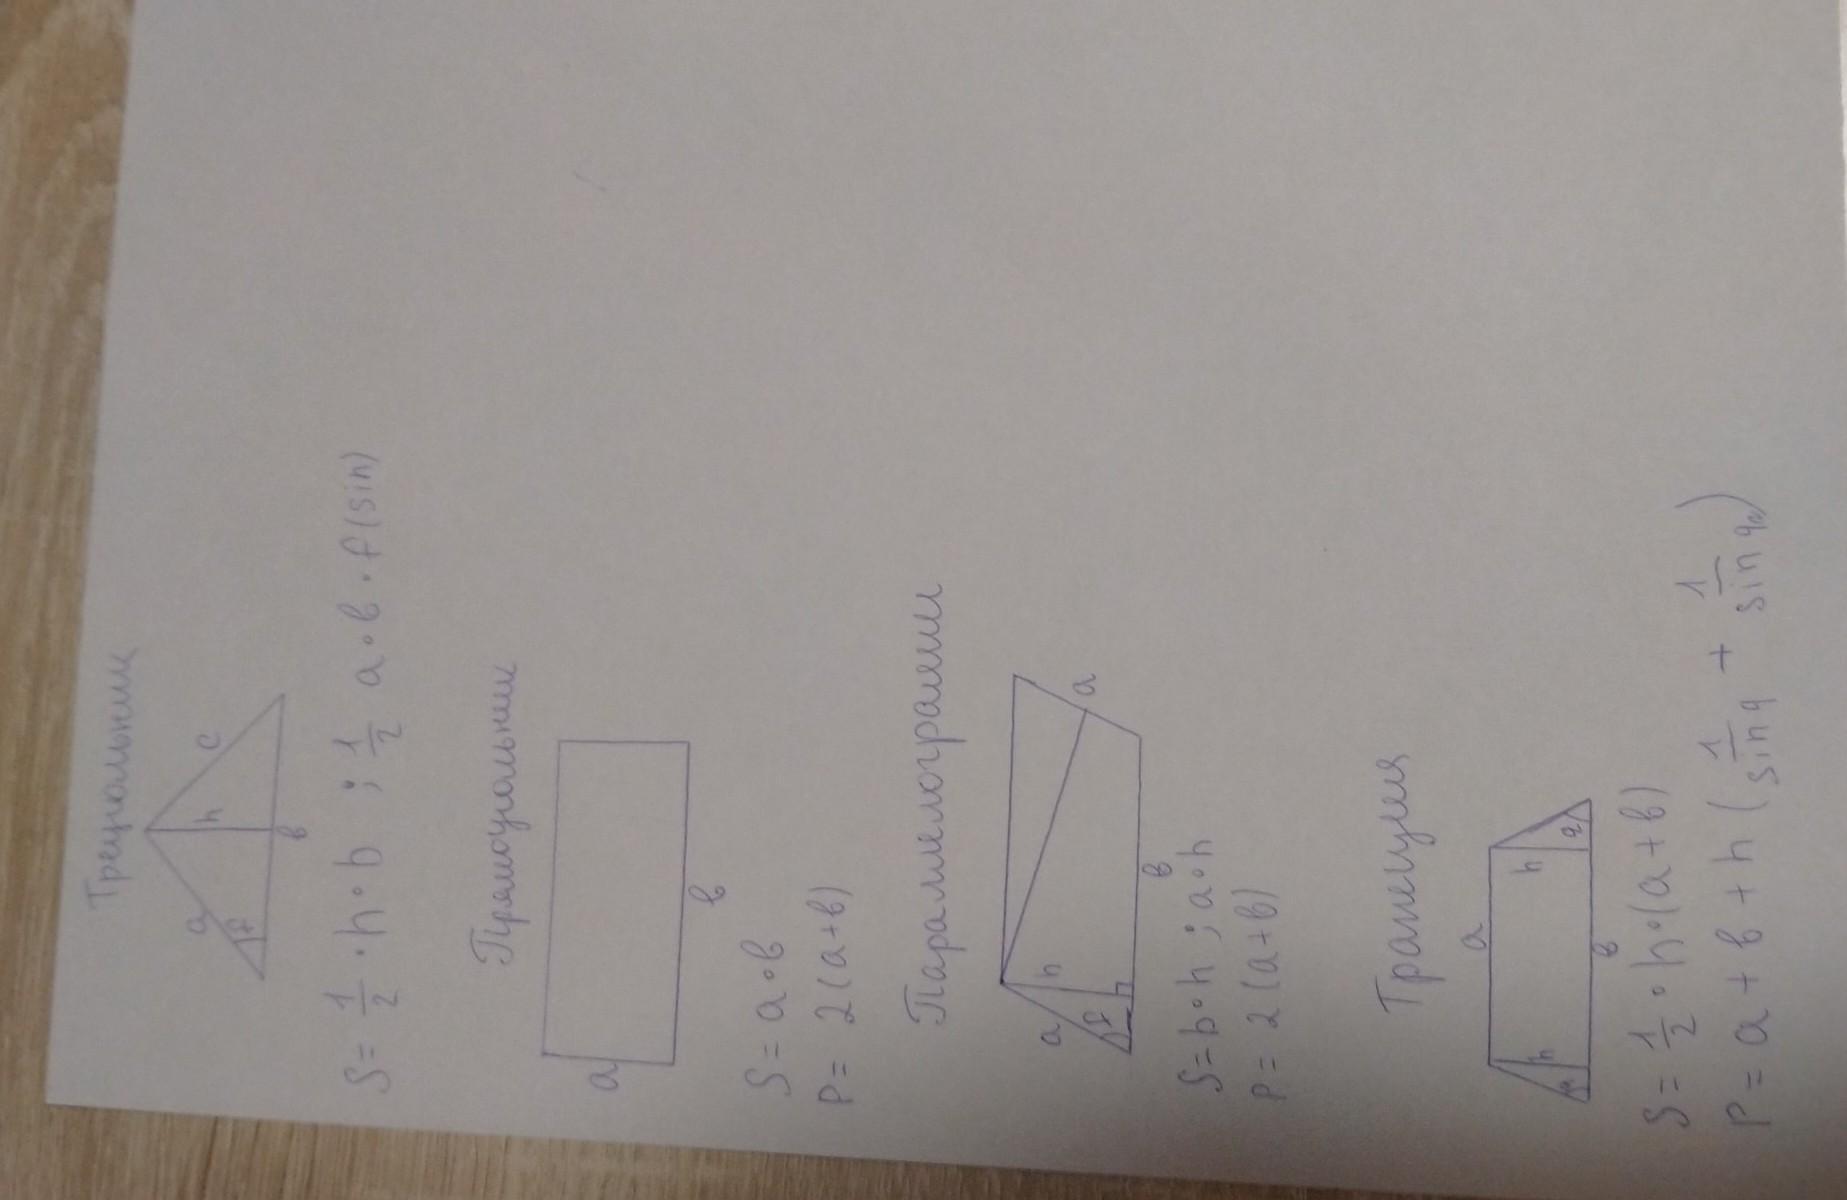 Треугольник
a
c
h
f
в
S = 1/2 · h · b ; 1/2 a · в · f(sin)
Прямоугольник
a
в
S = a · в
P = 2(a+в)
Параллелограмм
a
h
f
h
a
в
S = b · h ; a · h
P = 2(a+в)
Трапеция
a
h
h
в
S = 1/2 · h · (a+в)
P = a + в + h (1/sin q + 1/sin q₂)